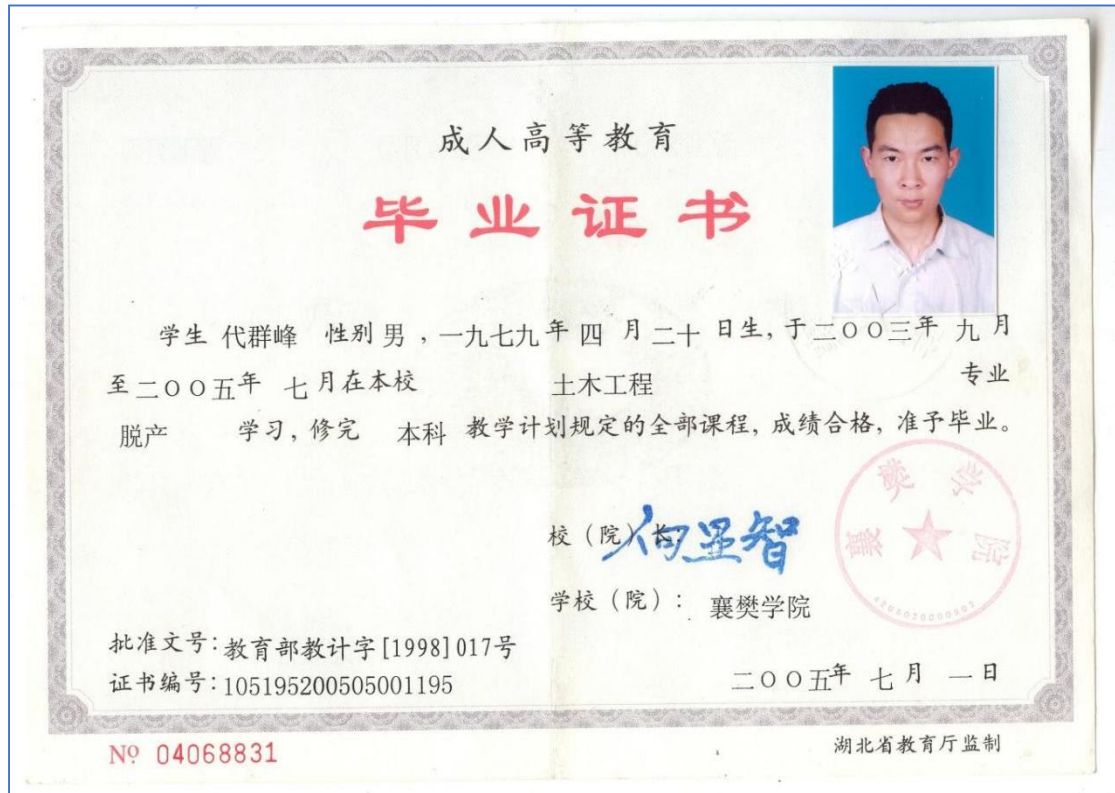 成人高等教育
毕业证书
学生 代群峰 性别 男，一九七九年 四 月 二十 日生，于二〇〇三年 九 月
至二〇〇五年 七月在本校 土木工程 专业
脱产 学习，修完 本科 教学计划规定的全部课程，成绩合格，准予毕业。
校（院）长：向显智
学校（院）：襄樊学院
襄樊学院
批准文号：教育部教计字[1998]017号
证书编号：105195200505001195
二〇〇五年 七月 一日
№ 04068831
湖北省教育厅监制